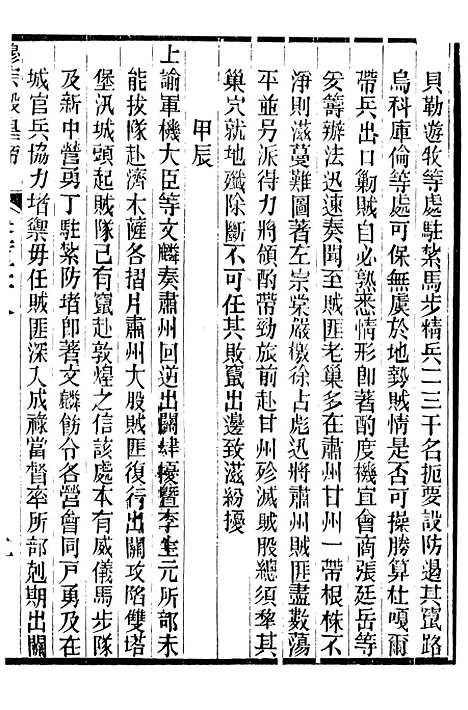 貝勒遊牧等處駐紮馬步精兵二三千名扼要設防遏其竄路
烏科庫倫等處可保無虞於地勢賊情是否可操勝算杜嘎爾
帶兵出口勦賊自必熟悉情形卽著酌度機宜會商張廷岳等
妥籌辦法迅速奏聞至賊匪老巢多在肅州甘州一帶根株不
淨則滋蔓難圖著左宗棠嚴檄徐占彪迅將肅州賊匪盡數蕩
平並另派得力將領酌帶勁旅前赴甘州殄滅賊股總須犂其
巢穴就地殲除斷不可任其敗竄出邊致滋紛擾
甲辰
上諭軍機大臣等文麟奏肅州回逆出關肆擾暨李生元所部未
能拔隊赴濟木薩各摺片肅州大股賊匪復行出關攻陷雙塔
堡汛城頭起賊隊已有竄赴敦煌之信該處本有威儀馬步隊
及新中營勇丁駐紮防堵卽著文麟飭令各營會同戶勇及在
城官兵協力堵禦毋任賊匪深入成祿當督率所部剋期出關